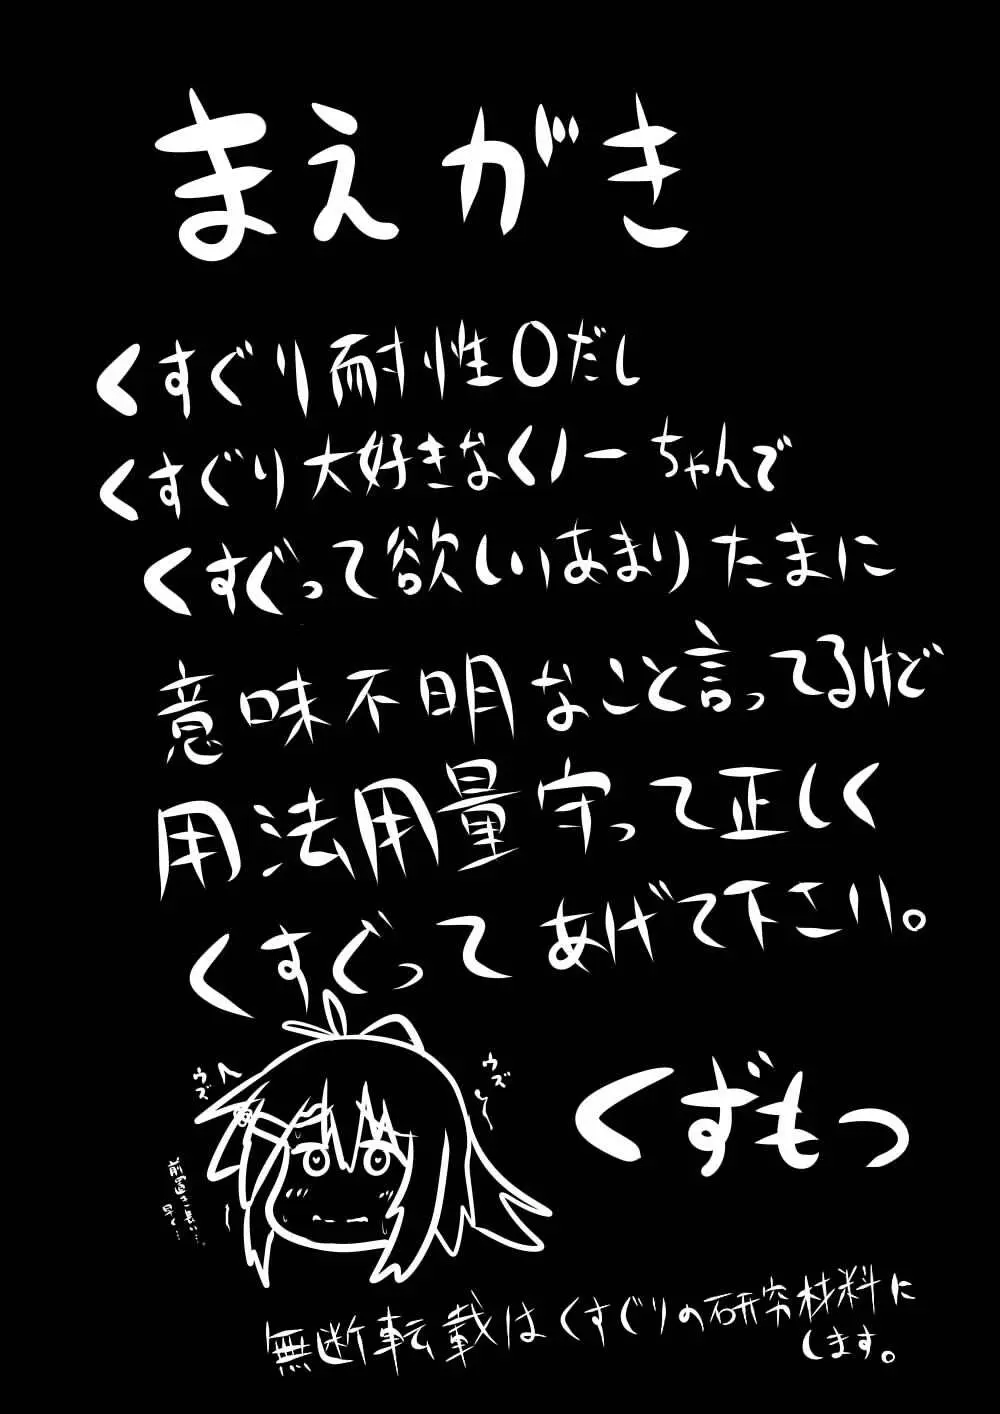 まえがき
くすぐり耐性0だし
くすぐり大好きなくノ一ちゃんで
くすぐって欲しいあまりたまに
意味不明なこと言ってるけど
用法用量守って正しく
くすぐってあげて下さい。
ウズ
ウズ
前置き長い…。
早く…
くずもつ
無断転載はくすぐりの研究材料に
します。